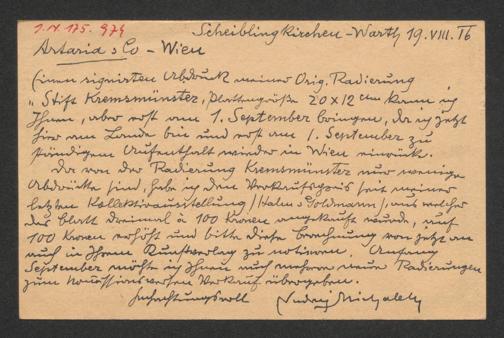 I.N. 175.974
Scheiblingkirchen-Warth 19.VIII.16
Artaria & Co - Wien
Einen signierten Abdruck meiner Orig. Radierung
"Stift Kremsmünster, Plattengröße 20x12 cm kann ich
Ihnen, aber erst am 1. September bringen, da ich jetzt
hier am Lande bin und erst am 1. September zu
ständigem Aufenthalt wieder in Wien einrücke.
Da von der Radierung Kremsmünster nur wenige
Abdrücke sind, habe ich den Verkaufspreis seit meiner
letzten Kollektivausstellung (Halm & Goldmann), aus welcher
das Blatt dreimal à 100 Kronen angekauft wurde, auf
100 Kronen erhöht und bitte diese Berechnung von jetzt an
auch in Ihrem Kunstverlag zu notieren. Anfang
September möchte ich Ihnen auch mehrere neue Radierungen
zum kommissionsweisen Verkauf übergeben.
Hochachtungsvoll Ludwig Michalek